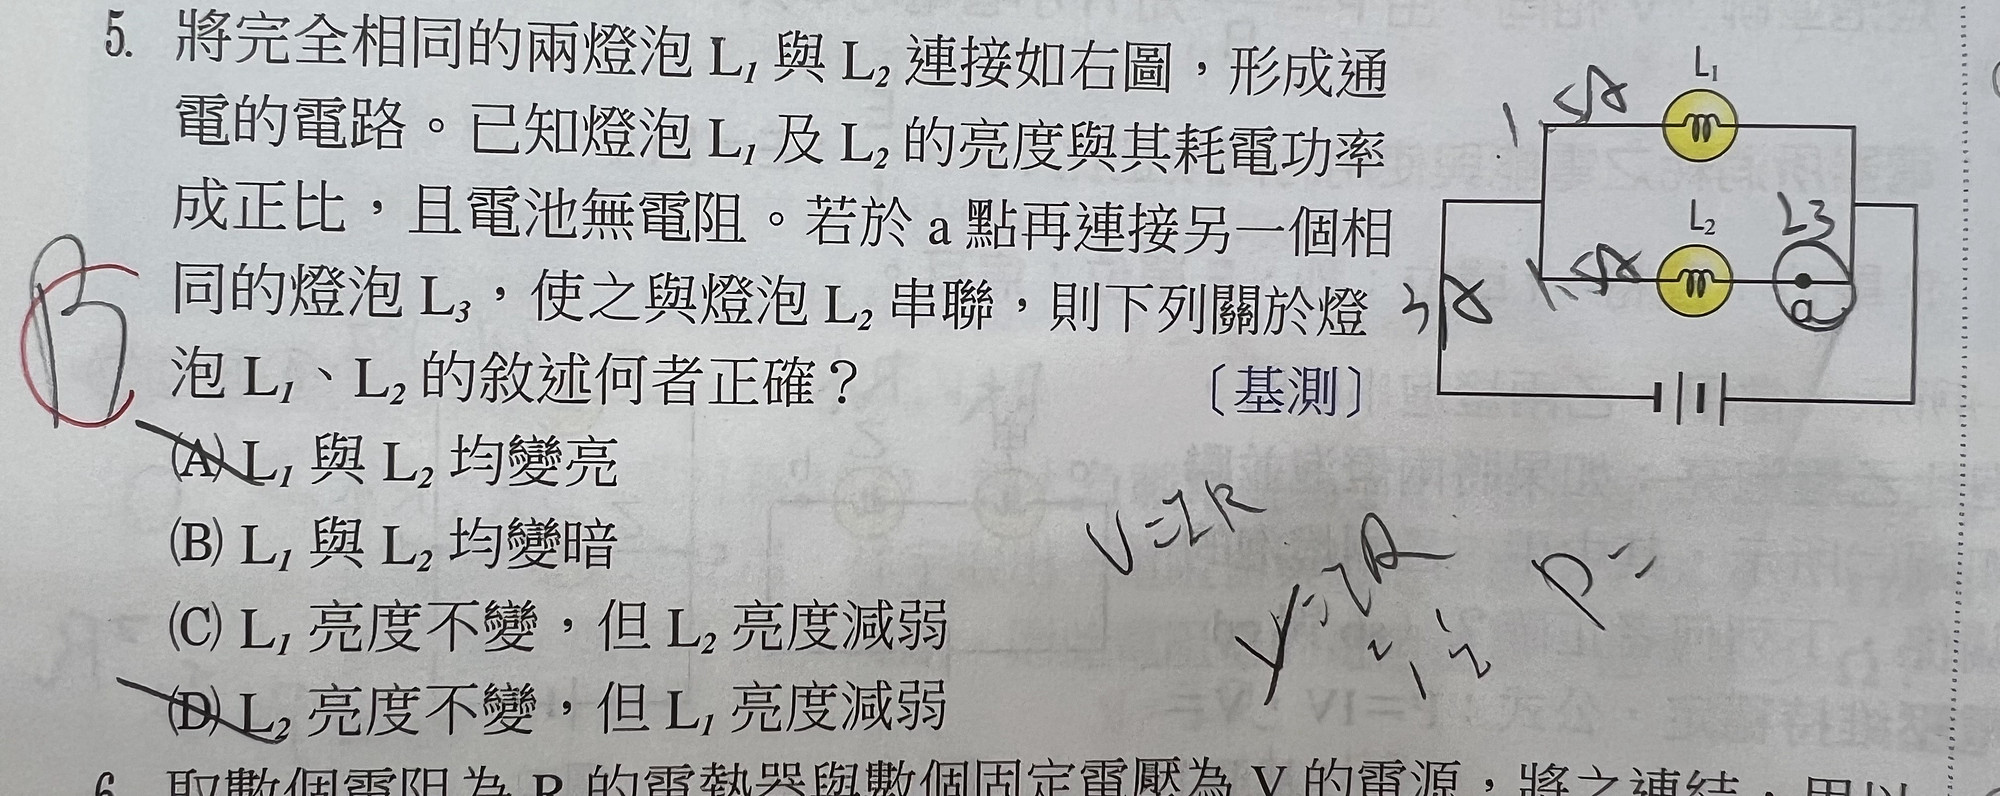 5. 將完全相同的兩燈泡 L1 與 L2 連接如右圖，形成通
電的電路。已知燈泡 L1 及 L2 的亮度與其耗電功率
成正比，且電池無電阻。若於 a 點再連接另一個相
同的燈泡 L3，使之與燈泡 L2 串聯，則下列關於燈
泡 L1、L2 的敘述何者正確？ 〔基測〕
B
(A) L1 與 L2 均變亮
(B) L1 與 L2 均變暗
(C) L1 亮度不變，但 L2 亮度減弱
(D) L2 亮度不變，但 L1 亮度減弱
L1
1.5A
L2
L3
1.5A
3A
a
V=IR
V=IR
P=
6. 取數個電阻為 R 的電熱器與數個固定電壓為 V 的電源，將之連結，用以